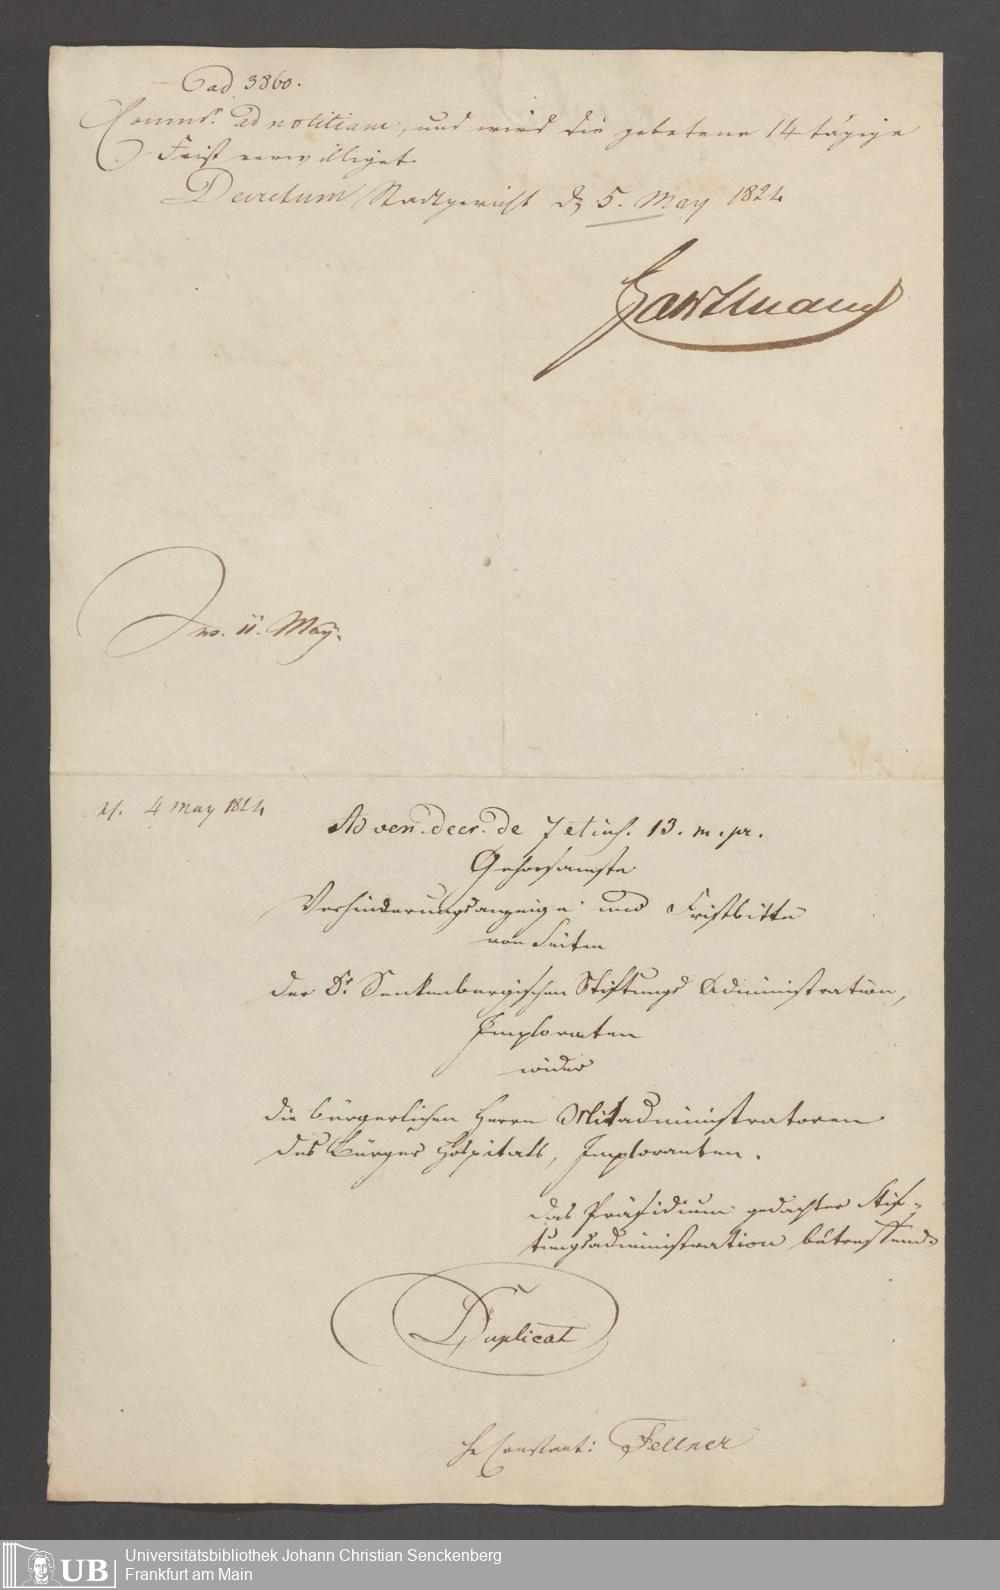 ad 3860.
Commr. ad notitiam, und wird die gebetene 14 tägige
Frist verwilliget.
Decretum Stadtgericht d. 5. May 1824
Hartmann
Ins. 11. May.
4 May 1824
Ad ven. decr. de 7 et ins. 13. m. pr.
Gehorsamste
Verhinderungsanzeige und Fristbitte
von Seiten
der Dr. Senkenbergischen Stiftungs Administration,
Imploraten
wider
die bürgerlichen Herrn Mitadministratoren
des Bürger Hospitals, Imploranten.
das Präsidium gedachter Stif-
tungsadministration betreffend.
Duplicat
Constant: Fellner
UB
Universitätsbibliothek Johann Christian Senckenberg
Frankfurt am Main